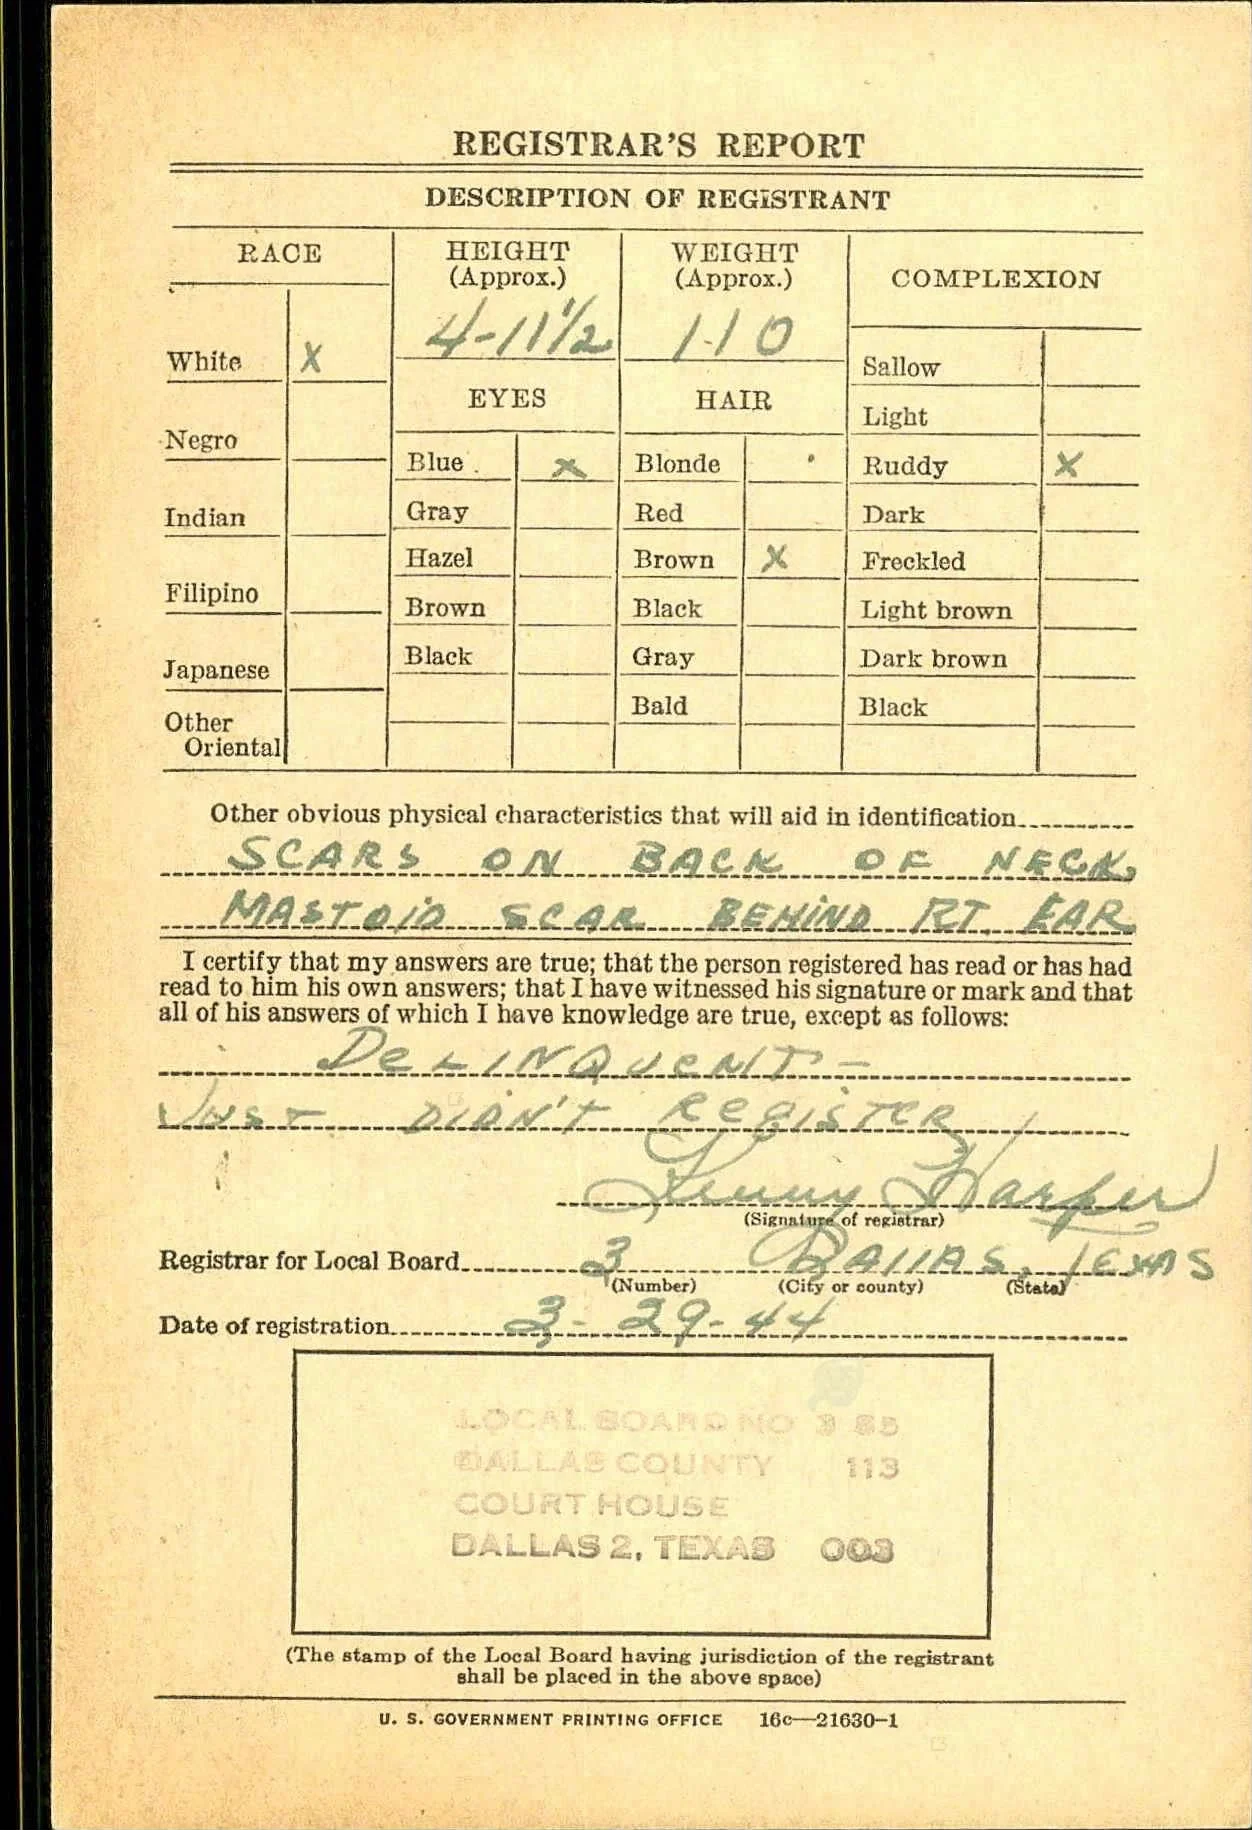 REGISTRAR'S REPORT
DESCRIPTION OF REGISTRANT
RACE
HEIGHT
(Approx.)
WEIGHT
(Approx.)
COMPLEXION
4-11 1/2
110
White X
Sallow
EYES
HAIR
Light
Negro
Blue X
Blonde
Ruddy X
Indian
Gray
Red
Dark
Hazel
Brown X
Freckled
Filipino
Brown
Black
Light brown
Japanese
Black
Gray
Dark brown
Bald
Black
Other
Oriental
Other obvious physical characteristics that will aid in identification
SCARS ON BACK OF NECK,
MASTOID SCAR BEHIND RT. EAR
I certify that my answers are true; that the person registered has read or has had
read to him his own answers; that I have witnessed his signature or mark and that
all of his answers of which I have knowledge are true, except as follows:
DELINQUENT -
JUST DIDN'T REGISTER
Harper
(Signature of registrar)
Registrar for Local Board 3 DALLAS, TEXAS
(Number) (City or county) (State)
Date of registration 3-29-44
LOCAL BOARD NO 3 85
DALLAS COUNTY 113
COURT HOUSE
DALLAS 2, TEXAS 003
(The stamp of the Local Board having jurisdiction of the registrant
shall be placed in the above space)
U. S. GOVERNMENT PRINTING OFFICE 16c—21630-1